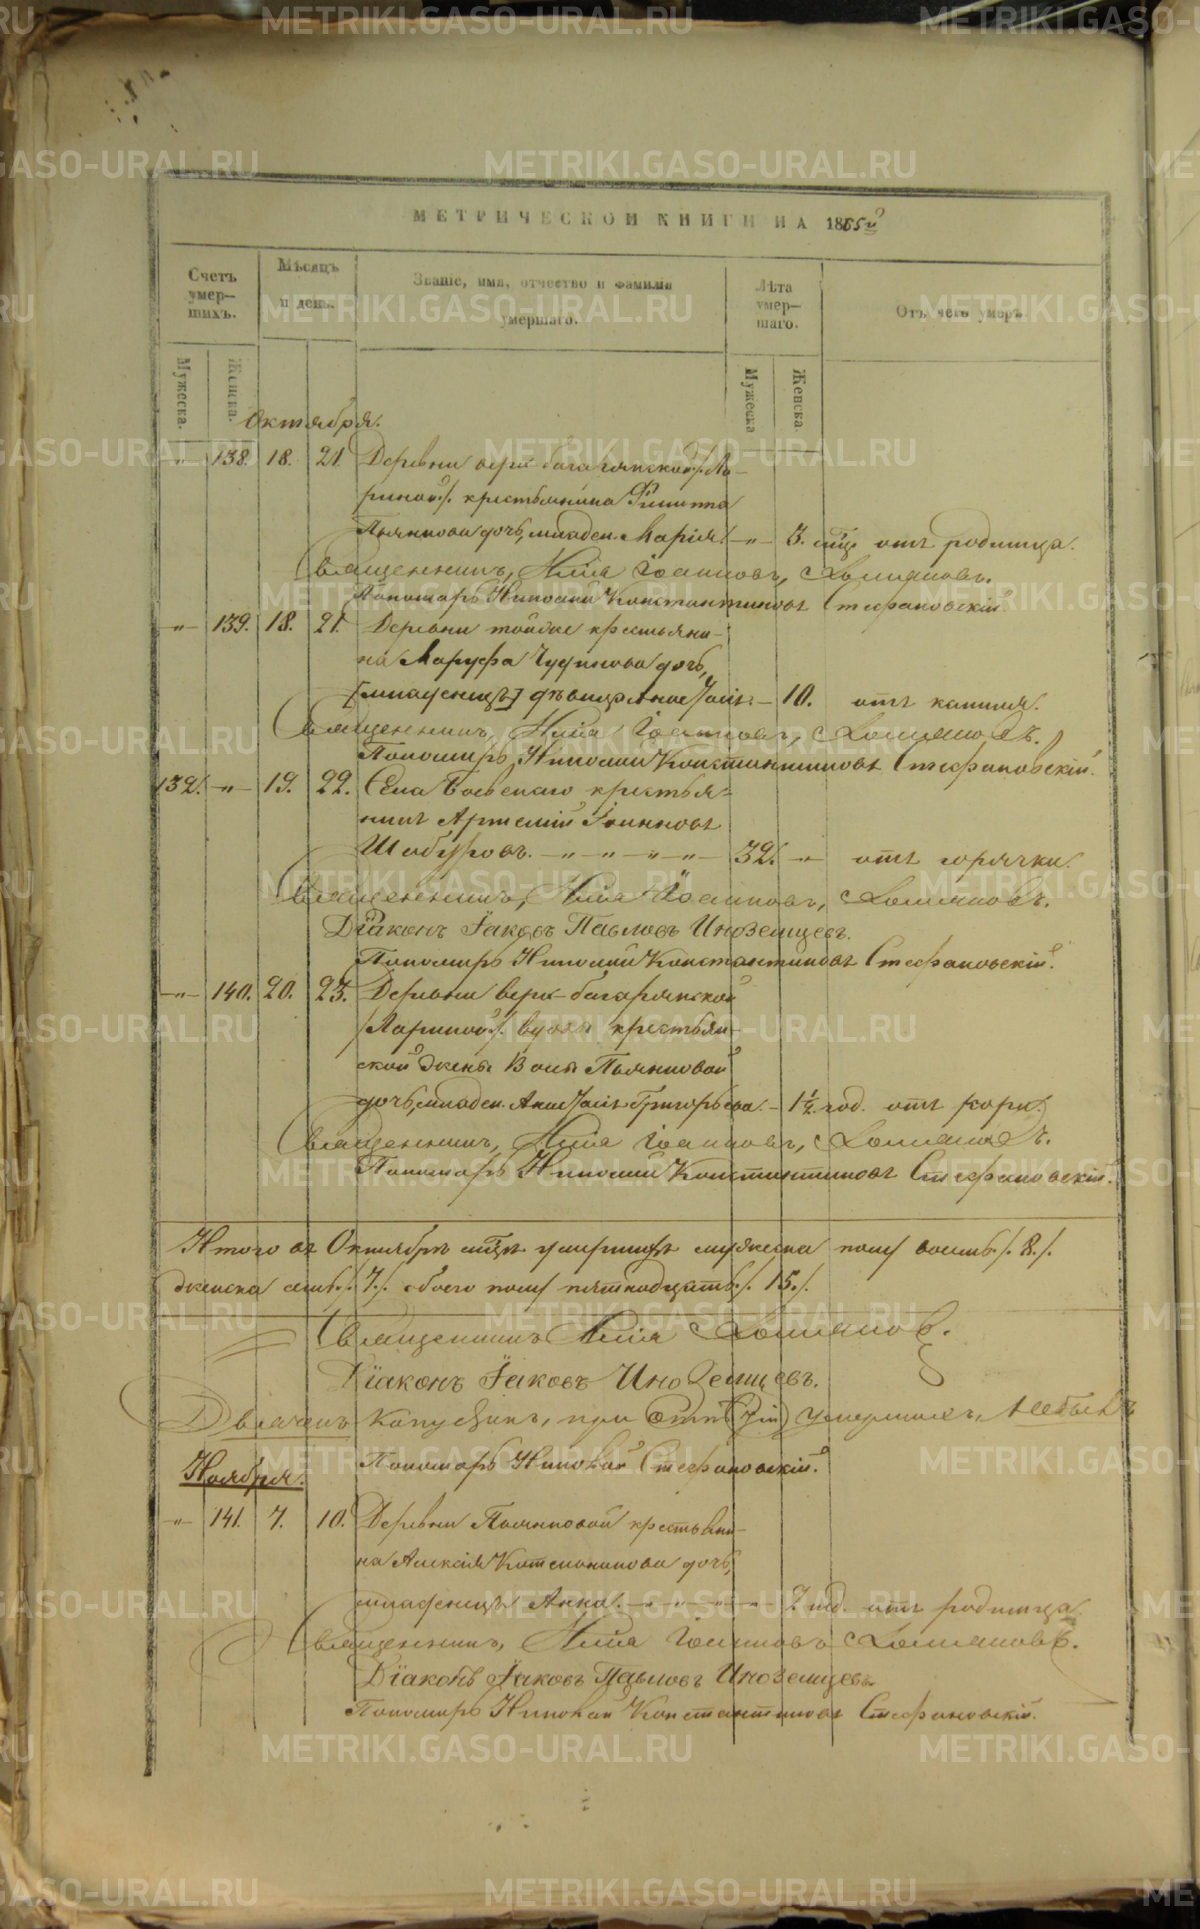 МЕТРИЧЕСКОЙ КНИГИ НА 1855й
Счетъ умер-шихъ.
Мѣсяцъ и день.
Званіе, имя, отчество и фамилія умершаго.
Лѣта умер-шаго.
Отъ чего умеръ.
Мужеска.
Женска.
Мужеска
Женска.
Октября.
-"- 138. 18. 21. Деревни верх-багарякской /Ла-
риной/. крестьянина Филиппа
Пьянкова дочь, младен. Марія. -"- 3. мѣц. отъ родимца.
Священникъ, Илія Іоанновъ,
Пономарь Николай Константиновъ Стефановскій.
-"- 139. 18. 21. Деревни тойже крестьяни-
на Маруфа Чудинова дочь,
[младенецъ] дѣвица Анастасія. - 10. отъ кашля.
Священникъ, Илія Іоанновъ,
Пономарь Николай Константиновъ Стефановскій.
132. -"- 19. 22. Села Боевскаго крестья-
нинъ Артемій Іоанновъ
Шабуровъ. -"-"-"-"- 32. -"- отъ горячки.
Священникъ, Илія Іоанновъ,
Діаконъ Іаковъ Павловъ Иноземцевъ.
Пономарь Николай Константиновъ Стефановскій.
-"- 140. 20. 23. Деревни верх-багарякской
/Лариной/. вдовы крестьян-
ской жены Пьянковой
дочь, младен. Анастасія Григорьева. - 1½ год. отъ кори.
Священникъ, Илія Іоанновъ,
Пономарь Николай Константиновъ Стефановскій.
Итого въ Октябрѣ мѣцѣ умершихъ мужеска полу восмь /.8./.
женска семь./.7./. обоего полу пятнадцать./.15./.
Священникъ Илія
Діаконъ Іаковъ Иноземцевъ.
при умершихъ, небылъ
Пономарь Николай Стефановскій.
Ноября.
-"- 141. 7. 10. Деревни Пьянковой крестьяни-
на Алексія дочь,
младенецъ Анна. -"-"-"-"- 2 год. отъ родимца.
Священникъ, Илія Іоанновъ
Діаконъ Іаковъ Павловъ Иноземцевъ.
Пономарь Николай Константиновъ Стефановскій.
METRIKI.GASO-URAL.RU